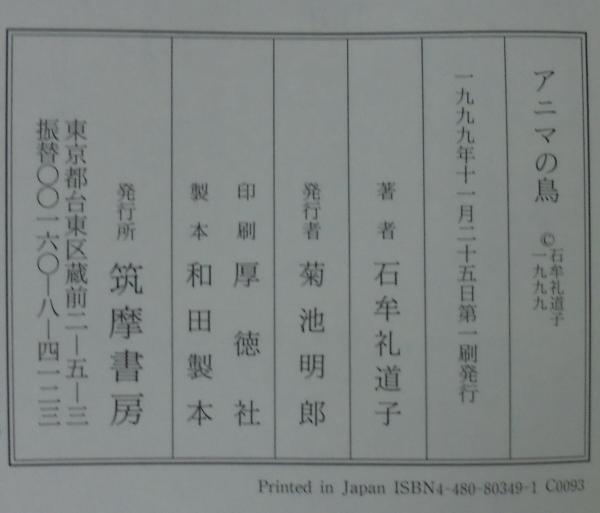 アニマの鳥
©石牟礼道子
一九九九
一九九九年十一月二十五日第一刷発行
著者 石牟礼道子
発行者 菊池明郎
印刷 厚徳社
製本 和田製本
発行所 筑摩書房
東京都台東区蔵前二—五—三
振替〇〇一六〇—八—四一二三
Printed in Japan ISBN4-480-80349-1 C0093